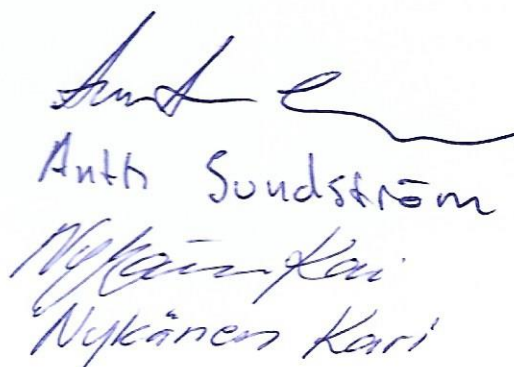 Antti Sundström
Nykänen Kari
Nykänen Kari